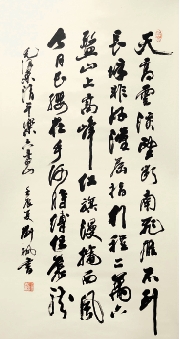 天高雲淡望斷南飛雁不到
長城非好漢屈指行程二萬六
盤山上高峰紅旗漫捲西風
今日長纓在手何時縛住蒼龍
毛澤東清平樂六盤山 壬辰夏劉書